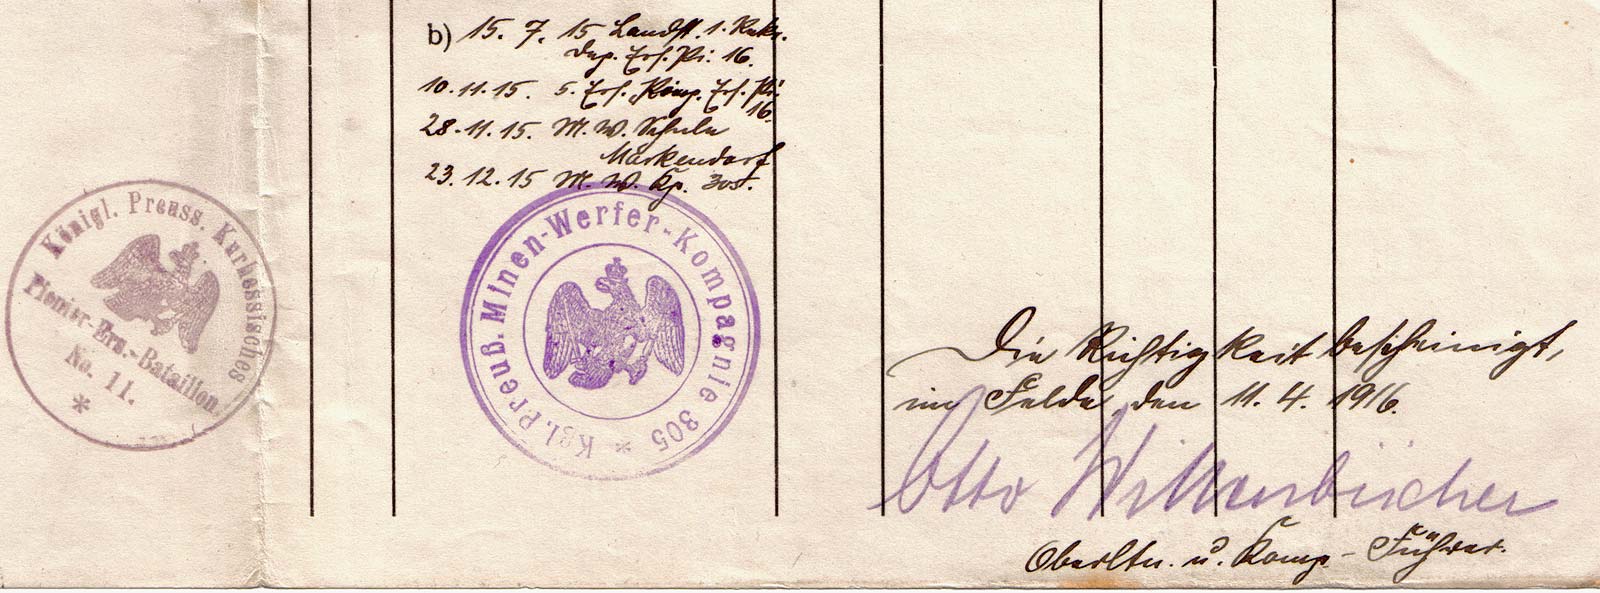 b) 15. 7. 15 Landst. 1. Rekr.
Dep. Ers. Pi. 16.
10. 11. 15. 5. Ers. Komp. Ers. Pi.
16.
28. 11. 15. M. W. Schule
Markendorf
23. 12. 15 M. W. Kp. 305.
Königl. Preuss. Kurhessisches
Pionier-Ers.-Bataillon.
No. 11.
*
Kgl. Preuß. Minen-Werfer-Kompagnie 305 *
Die Richtigkeit bescheinigt,
im Felde, den 11. 4. 1916.
Otto
Oberltn. u. Komp-Führer.